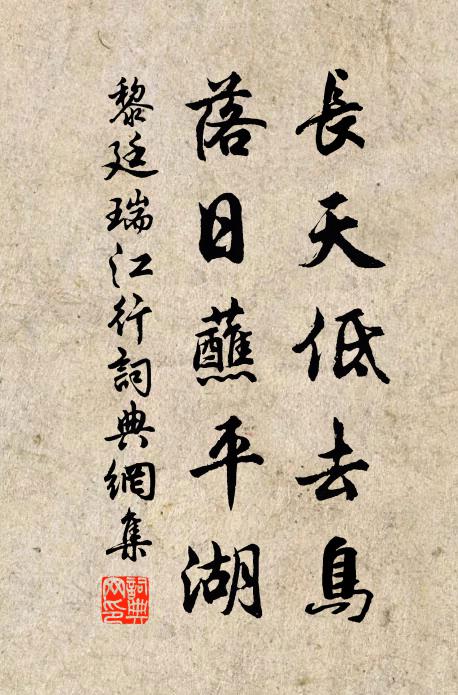 長天低去鳥
落日蘸平湖
黎廷瑞江行詞典網集
詞典網印